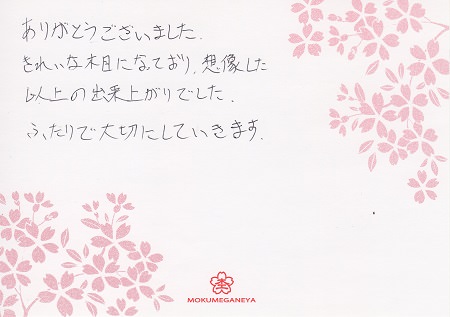 ありがとうございました.
きれいな木目になっており, 想像した
以上の出来上がりでした.
ふたりで大切にしていきます.
MOKUMEGANEYA